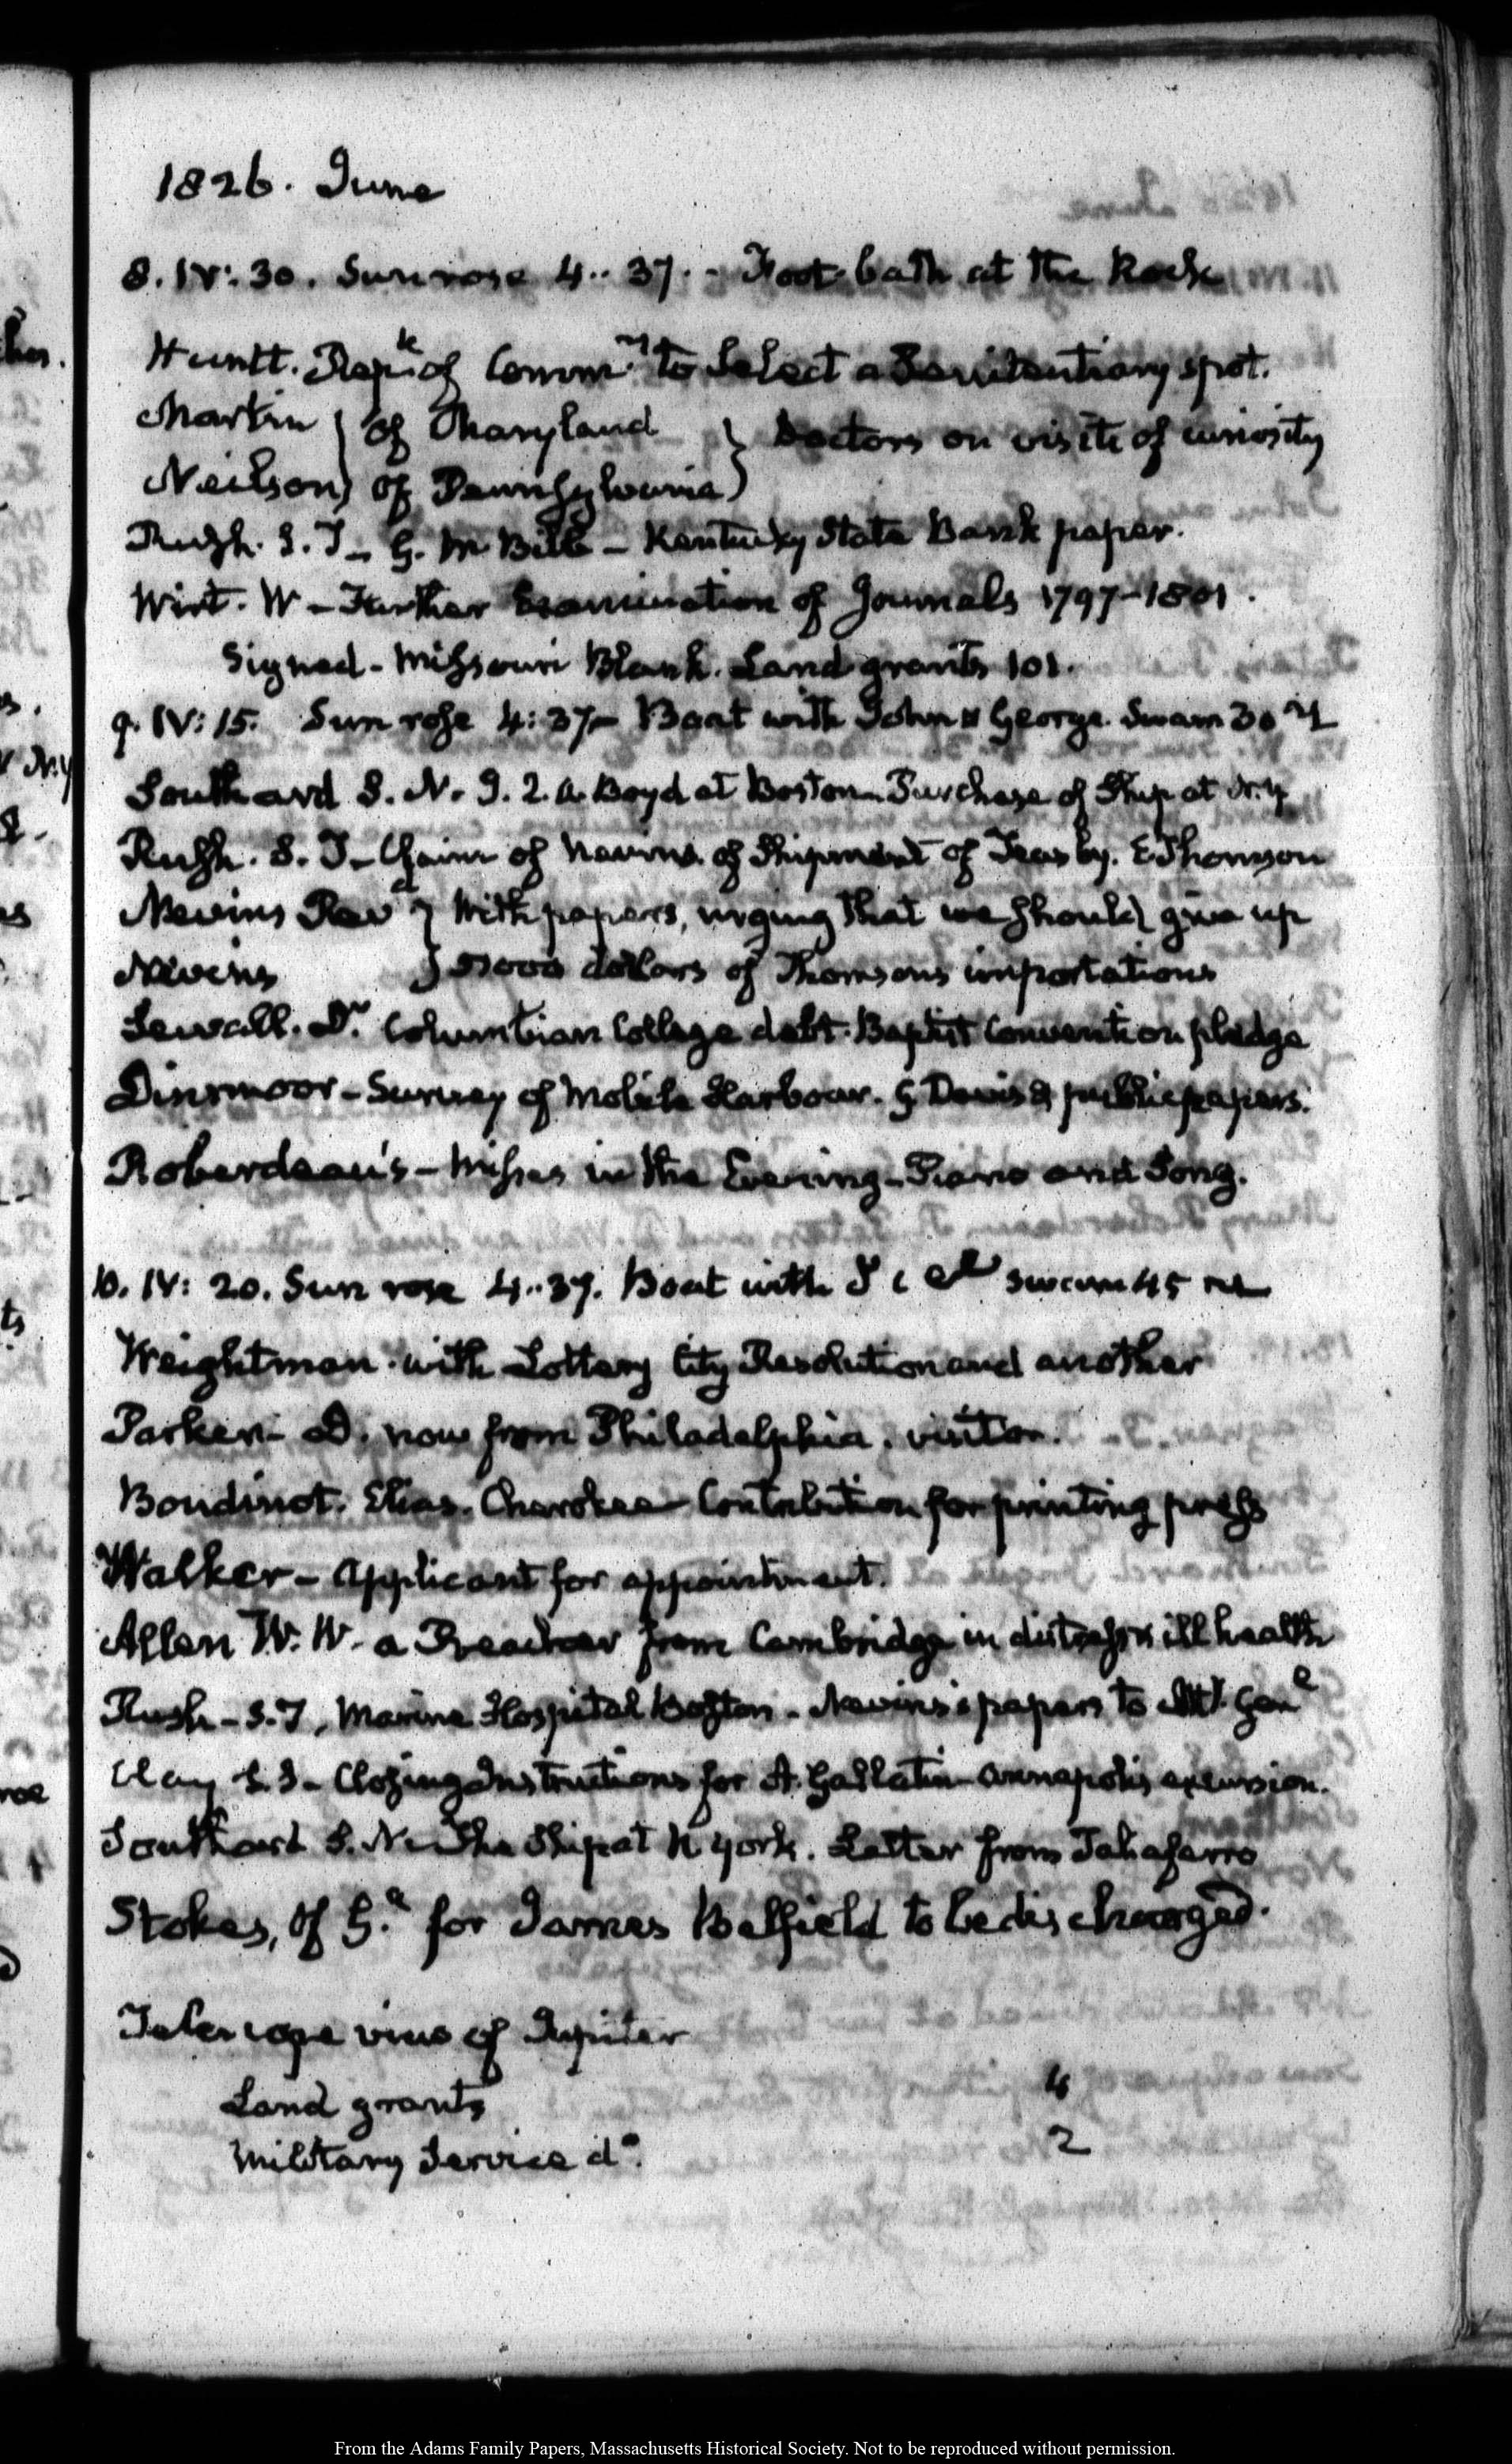 1826. June
8. IV: 30. Sun rose 4..37. - Foot bath at the Rock
Huntt. of Comm.rs to Select a Penitentiary spot.
Martin } of Maryland } Doctors on visits of curiosity
Neilson } of Pennsylvania }
Rush. S. T. - G. M. Bibb - Kentucky State Bank paper.
Wirt. W - Further Examination of Journals 1797-1801.
Signed - Missouri Blank. Land grants 101.
9. IV: 15. Sun rose 4: 37- Boat with John & George. Swam 30
Southard S. N. Boyd at Boston - Purchase of Ship at N. Y
Rush. S. T - Claim of Nevins. of Shipment of Teas by. E Thomson
Nevins Revd } With papers, urging that we should give up
Nevins } dollars of Thomsons importations
Sewall. Dr. Columbian College debt. Baptist Convention pledge
Dinsmoor - Survey of Mobile Harbour. G Davis's public papers.
Roberdeau's - Misses in the Evening - Piano and Song.
10. IV: 20. Sun rose 4..37. Boat with swam 45
Weightman. with Lottery City Resolution and another
Parker - D. now from Philadelphia. visitor.
Boudinot. Elias. Cherokee Contribution for printing press
Walker - Applicant for appointment.
Allen W. W. a Preacher from Cambridge in distress & ill health
Rush - S. T, Marine Hospital Boston - Nevins's papers to Att. Genl
Clay S. S - Closing Instructions for A. Gallatin - Annapolis excursion.
Southard S. N - The Ship at N York. Letter from Taliaferro
Stokes, of G.a for James Belfield to be discharged.
Telescope view of Jupiter
Land grants 4
Military Service do. 2
From the Adams Family Papers, Massachusetts Historical Society. Not to be reproduced without permission.